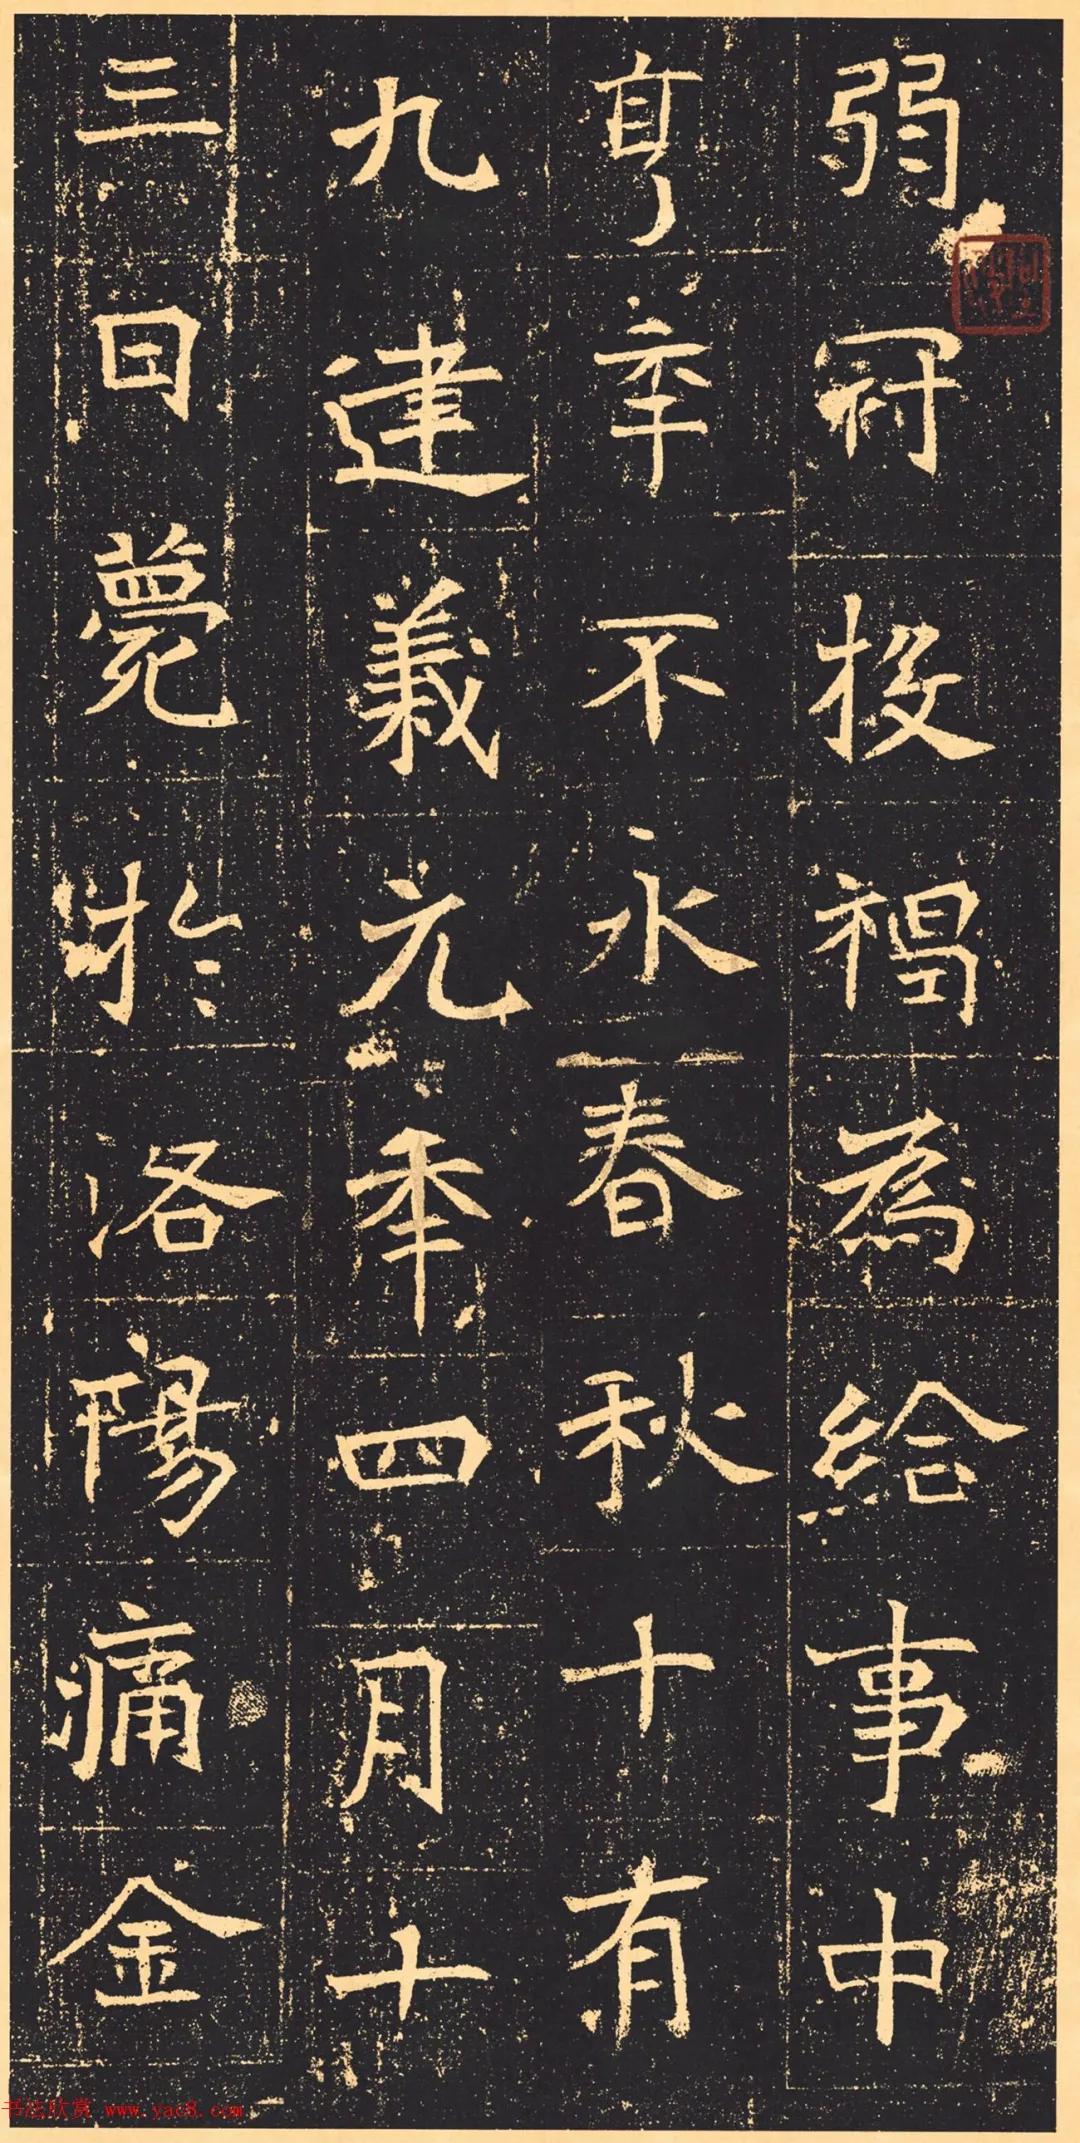 弱冠投褐為給事中
享年不永春秋十有
九建義元年四月十
三日薨於洛陽痛金
书法欣赏 www.yac8.com